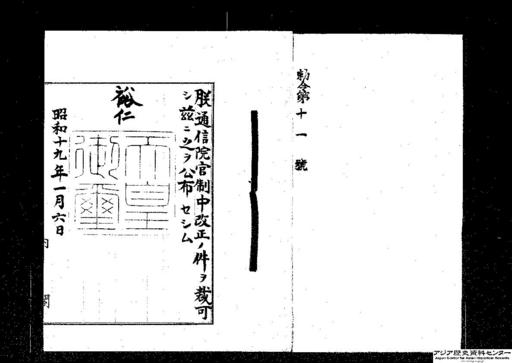 勅令第十一號
朕通信院官制中改正ノ件ヲ裁可
シ茲ニ之ヲ公布セシム
裕仁
天皇御璽
昭和十九年一月六日
内閣
アジア歴史資料センター
Japan Center for Asian Historical Records